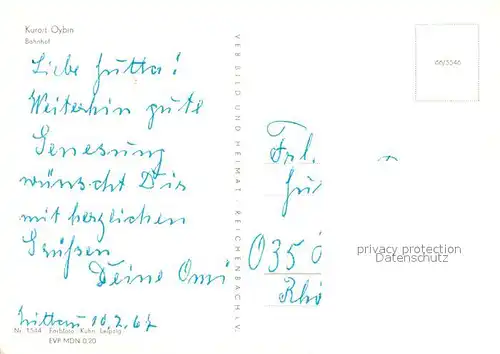 Kurort Oybin
Bahnhof
Liebe Jutta!
Weiterhin gute
Genesung
wünscht Dir
mit herzlichen
Grüßen
Deine Omi
Zittau 10.2.67
Farbfoto Kühn Leipzig
EVP MDN 0,20
VERBILD UND HEIMAT · REICHENBACH i. V.
66/5546
Frl.
Ju
035
privacy protection
Datenschutz